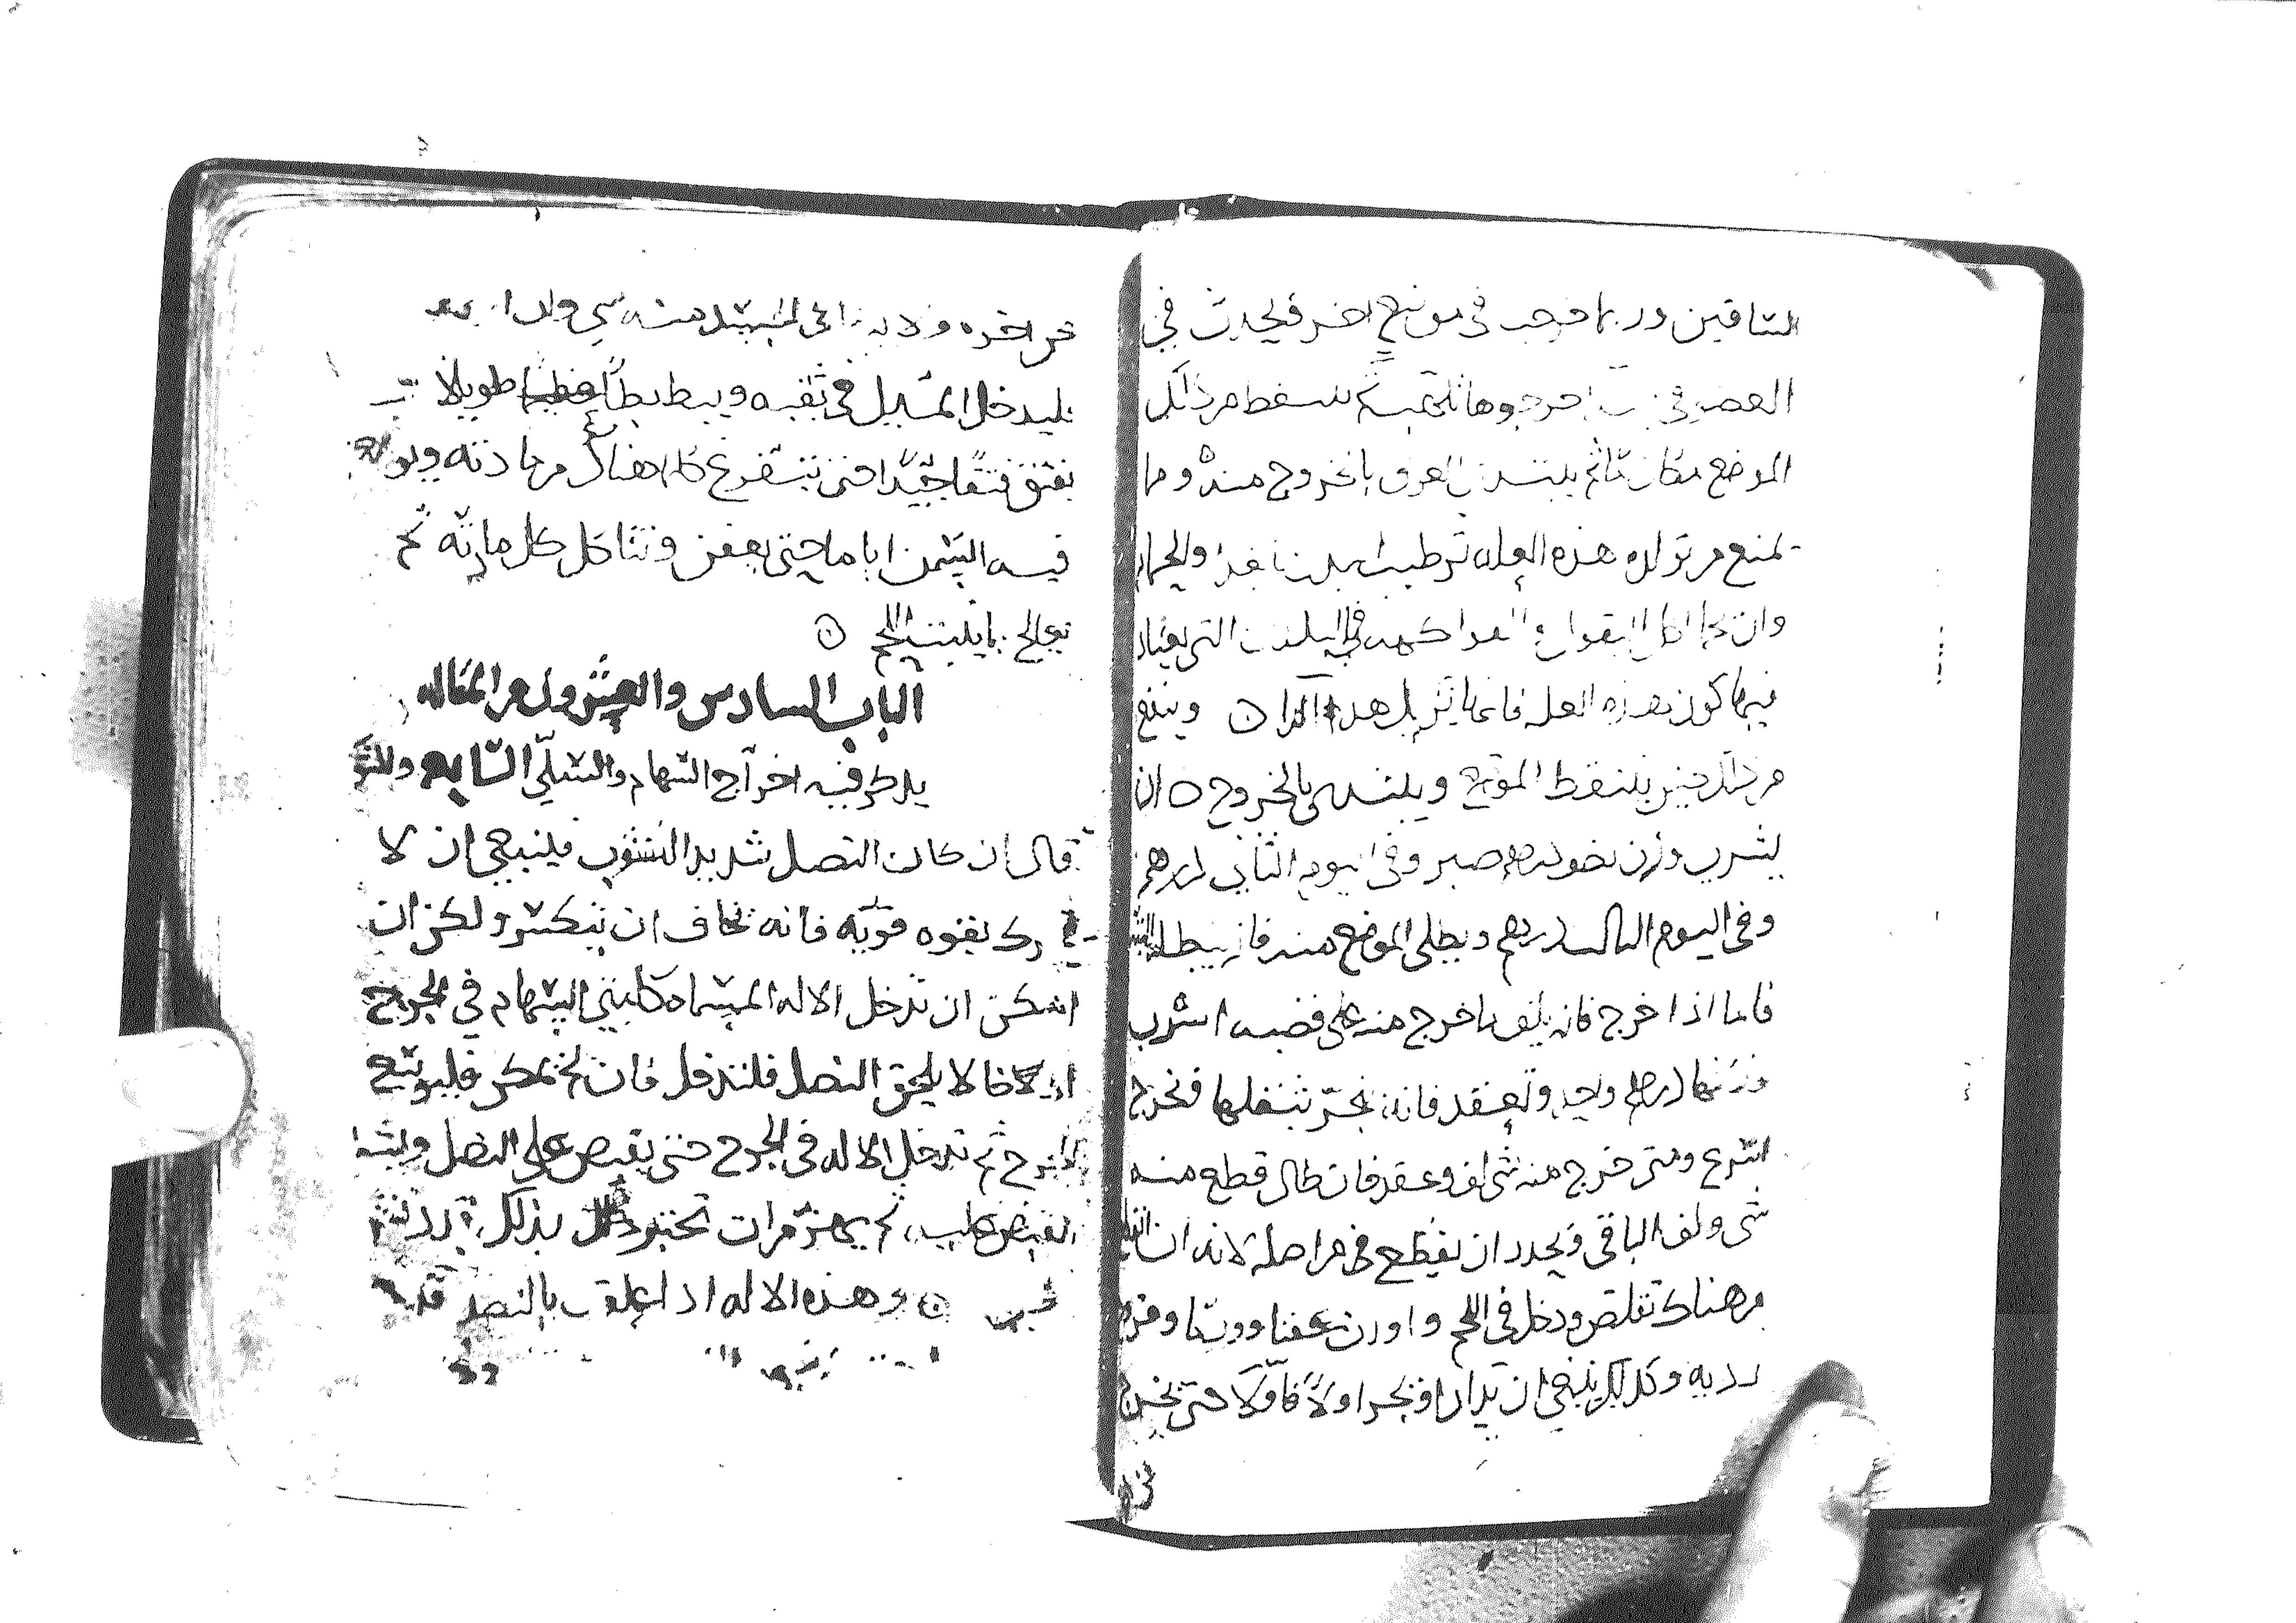 الساقين وربما خرجت في موضع اخر فيحدث في
العضو في
الموضع مكان ثم يبتدي العرق بالخروج منه ومما
يمنع من تولد هذه العله ترطيب البدن بالغذا والحمام
وان اكل البقول والفواكه في البلدان التي يعتاد
فيها كون هذه العله فانها تزيل هذا ن وينفع
من ذلك حين يتنفط الموضع ويبتدي بالخروج ن ان
يشرب وزن نصف درهم صبر وفي اليوم الثاني درهم
وفي اليوم الثالث درهم ويطلى الموضع منه فانه يبطل البتة
فاما اذا خرج فانه يلف ما خرج منه على قصبه اسرب
وزنها درهم واحد وتعقد فانه ينجر بثقلها فيخرج
اسرع ومتى خرج منه شي لف وعقد فان طال قطع منه
شي ولف الباقي ويحذر ان يقطع في من اصله لانه ان انقطع
من هناك تقلص ودخل في اللحم واورث عفنا وورما وقروح
رديه وكذلك ينبغي ان يدارا ويجر اولا فاولا حتى يخرج
عن اخره ولا يبقى في الجسد منه شي وان
فليدخل الميل في ثقبه ويبط بطا طويلا
يفتق فتقا جيدا حتى يستفرغ كل ما هناك من مادته ويوضع
فيه السمن اياما حتى يعفن وتتاكل كل مادته ثم
يعالج بما ينبت اللحم ن
الباب السادس والعشرون من المقاله
يذكر فيه اخراج السهام والسلي السابعه والشوك
قال ان كان النصل شديد النشوب فلينبغي ان لا
يحرك بقوه قويه فانه يخاف ان ينكسر ولكن ان
امكن ان تدخل الاله المسماه كلبتي السهام في الجرح
ادخالا يلحق النصل فلتدخل فان لم يمكن فليوسع
الجرح ثم تدخل الاله في الجرح حتى يقبض على النصل ويشد
القبض عليه ثم يهز مرات تختبر بذلك
ن وهذه الاله اذا علقت بالنصل